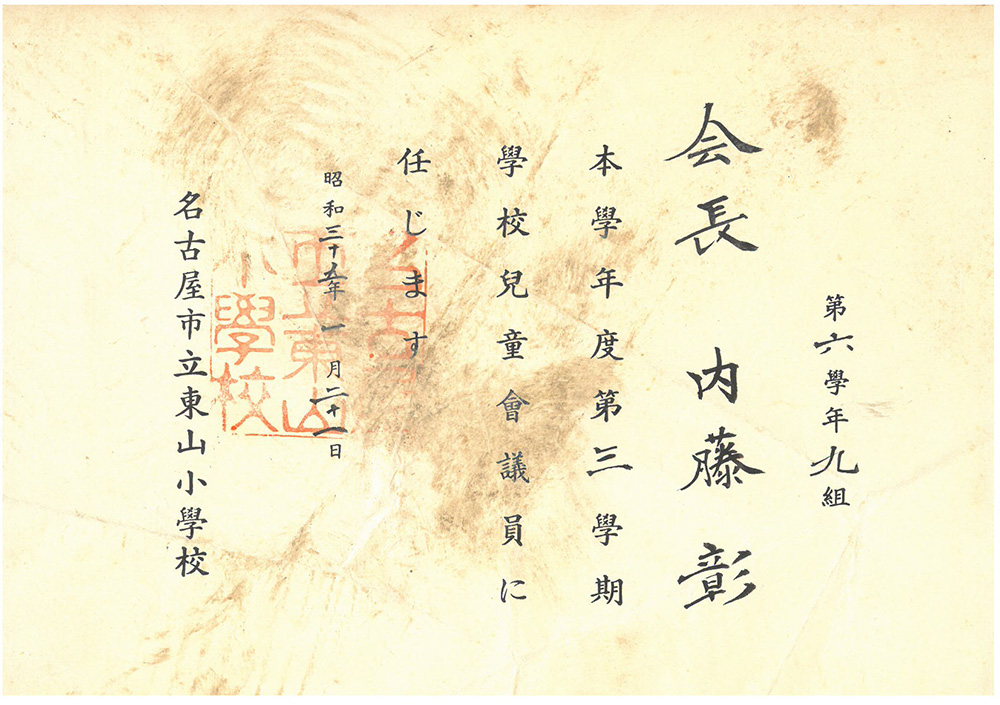 第六學年九組
会長 内藤彰
本學年度第三學期
學校兒童會議員に
任じます
昭和三十五年一月二十一日
名古屋市立東山小學校